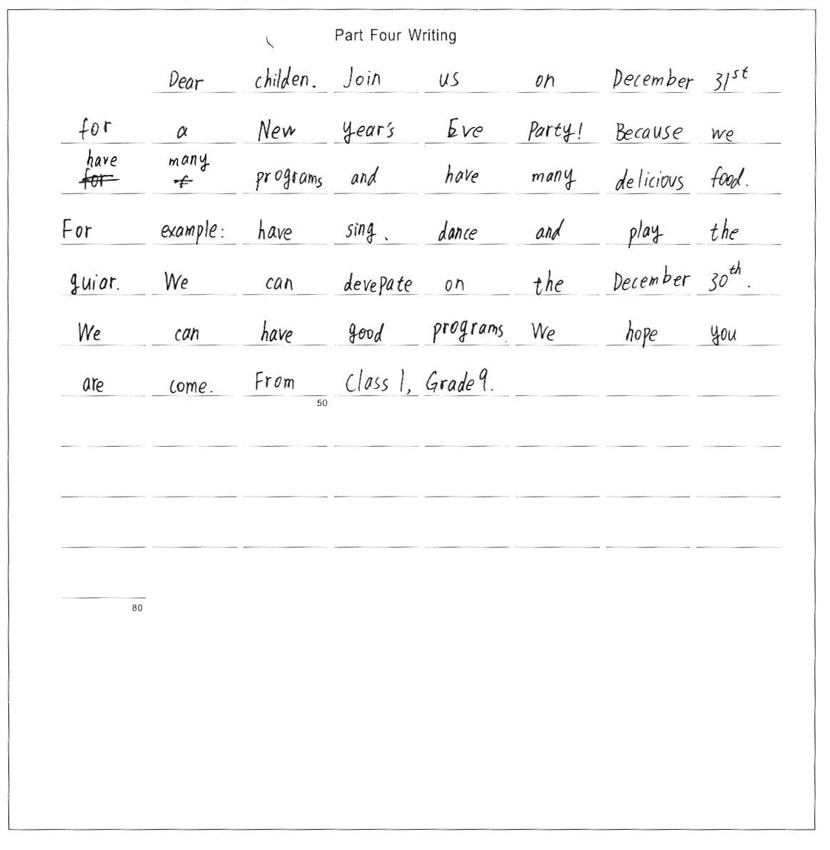 Part Four Writing
Dear childen. Join us on December 31st
for a New year's Eve Party! Because we
have many programs and have many delicious food.
For example: have sing、dance and play the
guior. We can devepate on the December 30th.
We can have good programs. We hope you
are come. From Class 1, Grade 9.
50
80